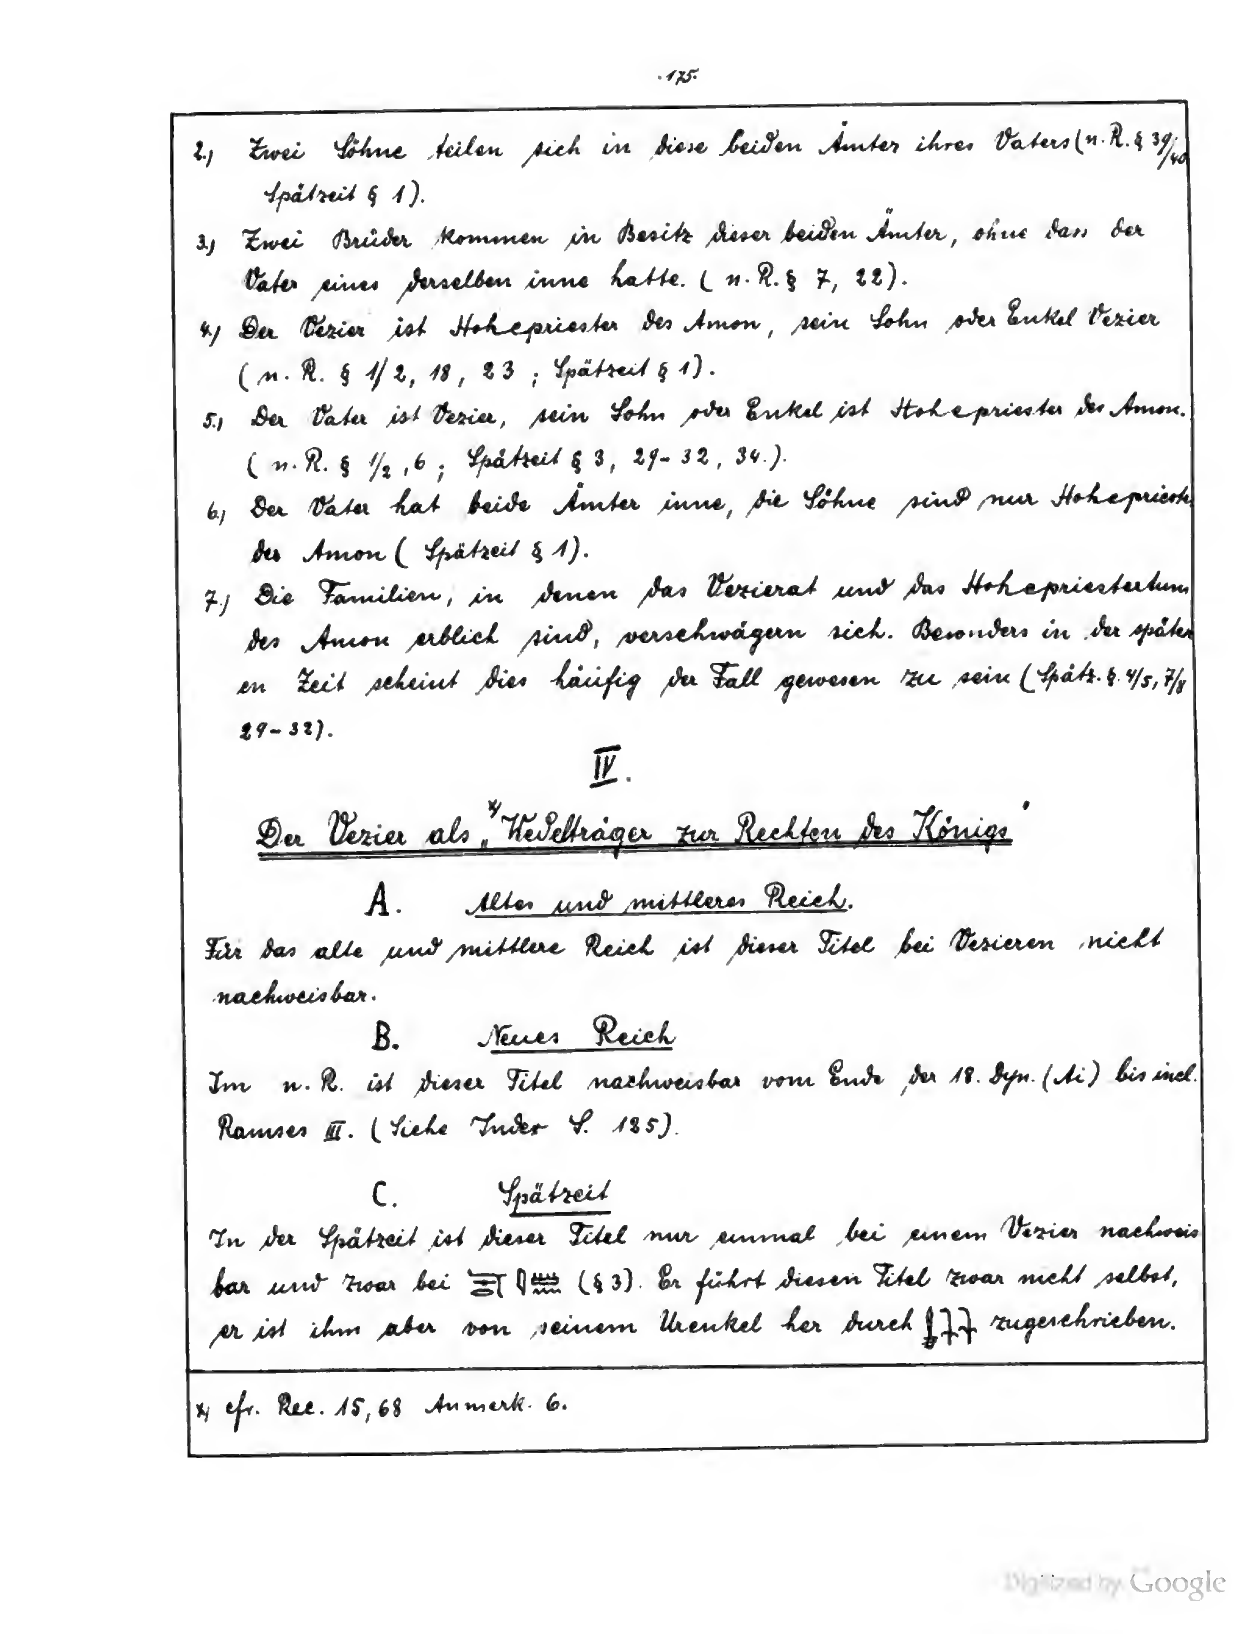 ·175·
2.) Zwei Söhne teilen sich in diese beiden Ämter ihres Vaters (n. R. § 39/40
Spätzeit § 1).
3.) Zwei Brüder kommen in Besitz dieser beiden Ämter, ohne dass der
Vater eines derselben inne hatte. ( n. R. § 7, 22).
4.) Der Vezier ist Hohepriester des Amon, sein Sohn oder Enkel Vezier
( n. R. § 1/2, 18, 23 ; Spätzeit § 1).
5.) Der Vater ist Vezier, sein Sohn oder Enkel ist Hohepriester des Amon.
( n. R. § 1/2, 6 ; Spätzeit § 3, 29-32, 34.).
6.) Der Vater hat beide Ämter inne, die Söhne sind nur Hohepriester
des Amon ( Spätzeit § 1).
7.) Die Familien, in denen das Vezierat und das Hohepriestertum
des Amon erblich sind, verschwägern sich. Besonders in der später
en Zeit scheint dies häufig der Fall gewesen zu sein ( Spätz. § 4/5, 7/8
29-32).
IV.
Der Vezier als x) „Wedelträger zur Rechten des Königs"
A. Altes und mittleres Reich.
Für das alte und mittlere Reich ist dieser Titel bei Vezieren nicht
nachweisbar.
B. Neues Reich
Im n. R. ist dieser Titel nachweisbar vom Ende der 18. Dyn. (Ai) bis incl.
Ramses III. ( Siehe Index S. 185).
C. Spätzeit
In der Spätzeit ist dieser Titel nur einmal bei einem Vezier nachweis
bar und zwar bei (§ 3). Er führt diesen Titel zwar nicht selbst,
er ist ihm aber von seinem Urenkel her durch zugeschrieben.
x) cfr. Rec. 15, 68 Anmerk. 6.
Digitized by Google